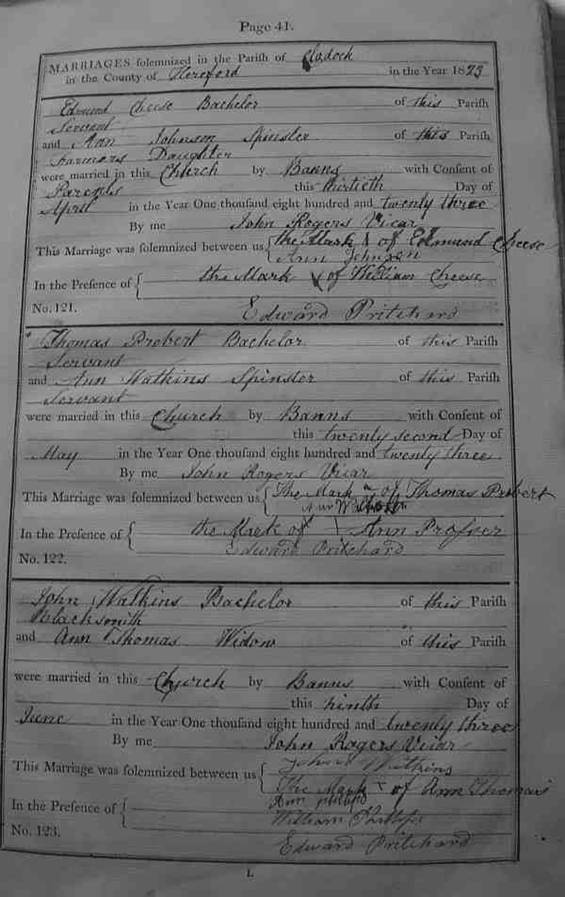 Page 41.
MARRIAGES solemnized in the Parish of Clodock
in the County of Hereford in the Year 1823
Edmund Cheese Bachelor of this Parish
Servant
and Ann Johnson Spinster of this Parish
Farmers Daughter
were married in this Church by Banns with Consent of
Parents this thirtieth Day of
April in the Year One thousand eight hundred and twenty three
By me John Rogers Vicar
This Marriage was solemnized between us { the Mark X of Edmund Cheese
Ann Johnson
In the Presence of { the Mark X of William Cheese
Edward Pritchard
No. 121.
Thomas Probert Bachelor of this Parish
Servant
and Ann Watkins Spinster of this Parish
Servant
were married in this Church by Banns with Consent of
this twenty second Day of
May in the Year One thousand eight hundred and twenty three
By me John Rogers Vicar
This Marriage was solemnized between us { The Mark of Thomas Probert
Ann
In the Presence of { the Mark of Ann Prosser
Edward Pritchard
No. 122.
John Watkins Bachelor of this Parish
Blacksmith
and Ann Thomas Widow of this Parish
were married in this Church by Banns with Consent of
this ninth Day of
June in the Year One thousand eight hundred and twenty three
By me John Rogers Vicar
This Marriage was solemnized between us { John Watkins
The Mark X of Ann Thomas
In the Presence of { Ann
William Phillips
Edward Pritchard
No. 123.
L